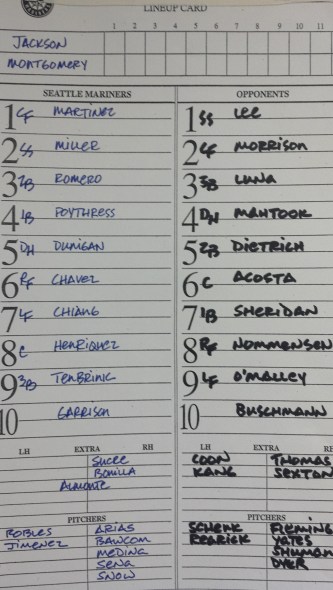 LINEUP CARD
1 2 3 4 5 6 7 8 9 10 11
JACKSON
MONTGOMERY
SEATTLE MARINERS
1 CF MARTINEZ
2 SS MILLER
3 2B ROMERO
4 1B POYTHRESS
5 DH DUNIGAN
6 RF CHAVEZ
7 LF CHIANG
8 C HENRIQUEZ
9 3B TENBRINK
10 GARRISON
LH EXTRA RH
SUCRE
BONILLA
ALMONTE
PITCHERS
ROBLES ARIAS
JIMENEZ BAWCOM
MEDINA
SENA
SNOW
OPPONENTS
1 SS LEE
2 CF MORRISON
3 3B LUNA
4 DH MAHTOOK
5 2B DIETRICH
6 C ACOSTA
7 1B SHERIDAN
8 RF NOMMENSEN
9 LF O'MALLEY
10 BUSCHMANN
LH EXTRA RH
COON THOMAS
KANG SEXTON
PITCHERS
SCHENK FLEMING
REARICK YATES
SHUMAN
DYER